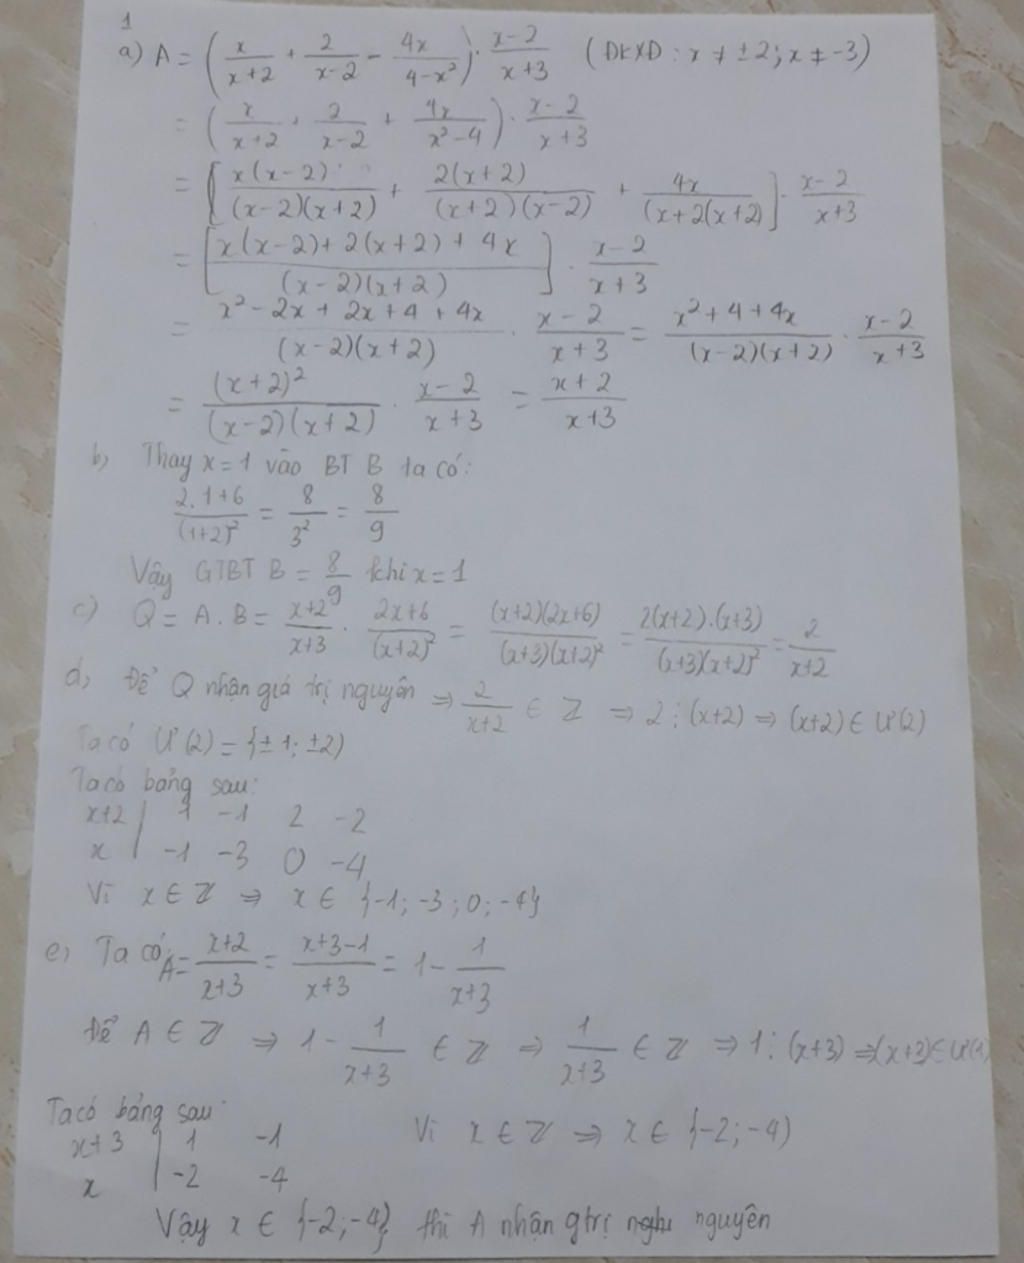 1
a) A = (x/(x+2) + 2/(x-2) - 4x/(4-x²)) · (x-2)/(x+3) (ĐKXĐ: x ≠ ±2; x ≠ -3)
= (x/(x+2) + 2/(x-2) + 4x/(x²-4)) · (x-2)/(x+3)
= [x(x-2)/((x-2)(x+2)) + 2(x+2)/((x+2)(x-2)) + 4x/((x+2(x+2)] · (x-2)/(x+3)
= [(x(x-2) + 2(x+2) + 4x)/((x-2)(x+2))] · (x-2)/(x+3)
= (x² - 2x + 2x + 4 + 4x)/((x-2)(x+2)) · (x-2)/(x+3) = (x² + 4 + 4x)/((x-2)(x+2)) · (x-2)/(x+3)
= (x+2)²/((x-2)(x+2)) · (x-2)/(x+3) = (x+2)/(x+3)
b, Thay x = 1 vào BT B ta có:
(2.1+6)/(1+2)² = 8/3² = 8/9
Vậy GTBT B = 8/9 khi x = 1
c) Q = A . B = (x+2)/(x+3) · (2x+6)/(x+2)² = (x+2)(2x+6)/((x+3)(x+2)²) = 2(x+2).(x+3)/((x+3)(x+2)²) = 2/(x+2)
d, Để Q nhận giá trị nguyên ⇒ 2/(x+2) ∈ Z ⇒ 2 ⋮ (x+2) ⇒ (x+2) ∈ Ư(2)
Ta có Ư(2) = {±1; ±2)
Ta có bảng sau:
x+2 | 1 -1 2 -2
x | -1 -3 0 -4
Vì x ∈ Z ⇒ x ∈ {-1; -3; 0; -4}
e, Ta có A = (x+2)/(x+3) = (x+3-1)/(x+3) = 1 - 1/(x+3)
Để A ∈ Z ⇒ 1 - 1/(x+3) ∈ Z ⇒ 1/(x+3) ∈ Z ⇒ 1 ⋮ (x+3) ⇒ (x+3) ∈ Ư(1)
Ta có bảng sau
x+3 | 1 -1
x | -2 -4
Vì x ∈ Z ⇒ x ∈ {-2; -4)
Vậy x ∈ {-2; -4} thì A nhận gtrị nguyên